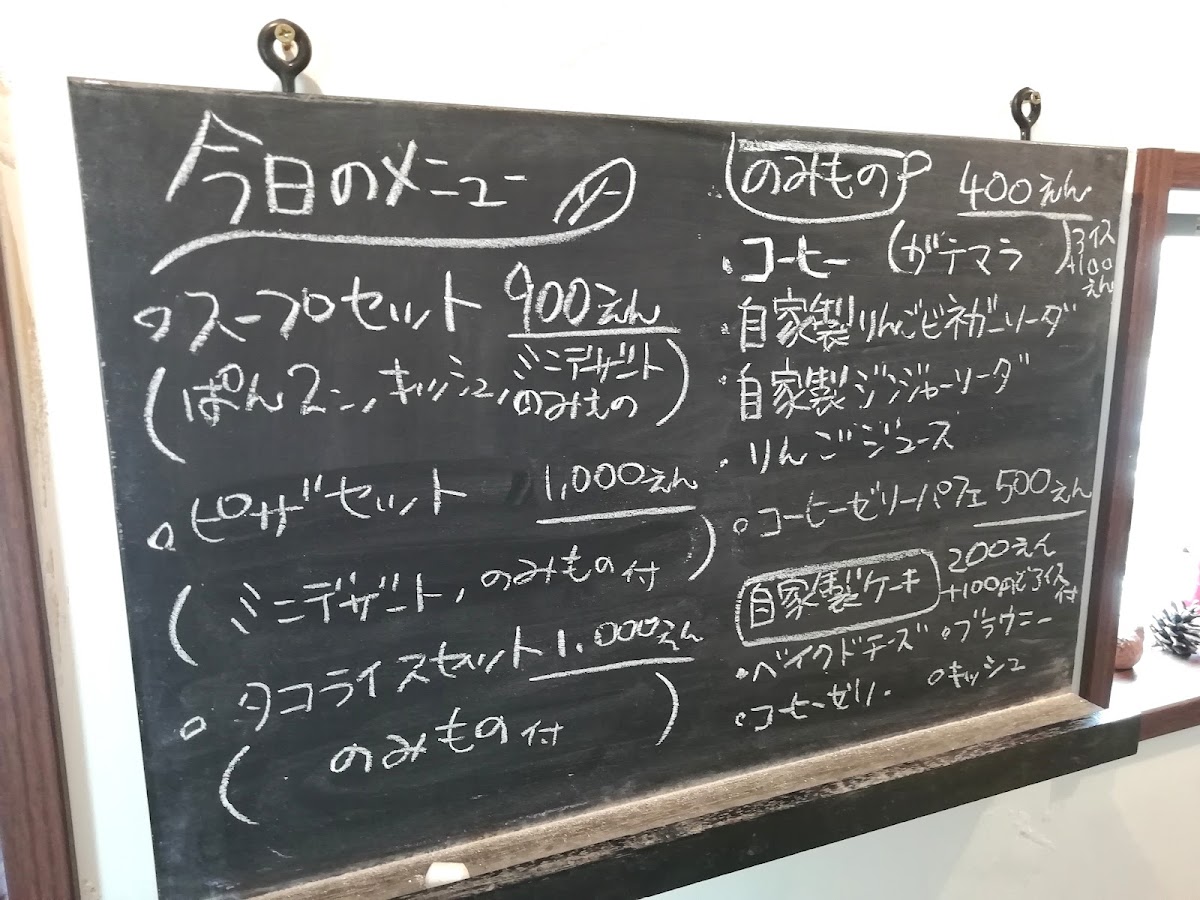 今日のメニュー
スープセット 900えん
(ぱん2こ,キッシュ,ミニデザート
のみもの)
ピザセット 1,000えん
(ミニデザート,のみもの付)
タコライスセット 1,000えん
(のみもの付)
のみもの 400えん
・コーヒー (ガテマラ) アイス
+100
えん
・自家製りんごビネガーソーダ
・自家製ジンジャーソーダ
・りんごジュース
コーヒーゼリーパフェ 500えん
自家製ケーキ 200えん
+100円でアイス付
・ベイクドチーズ ・ブラウニー
・コーヒーゼリー ・キッシュ